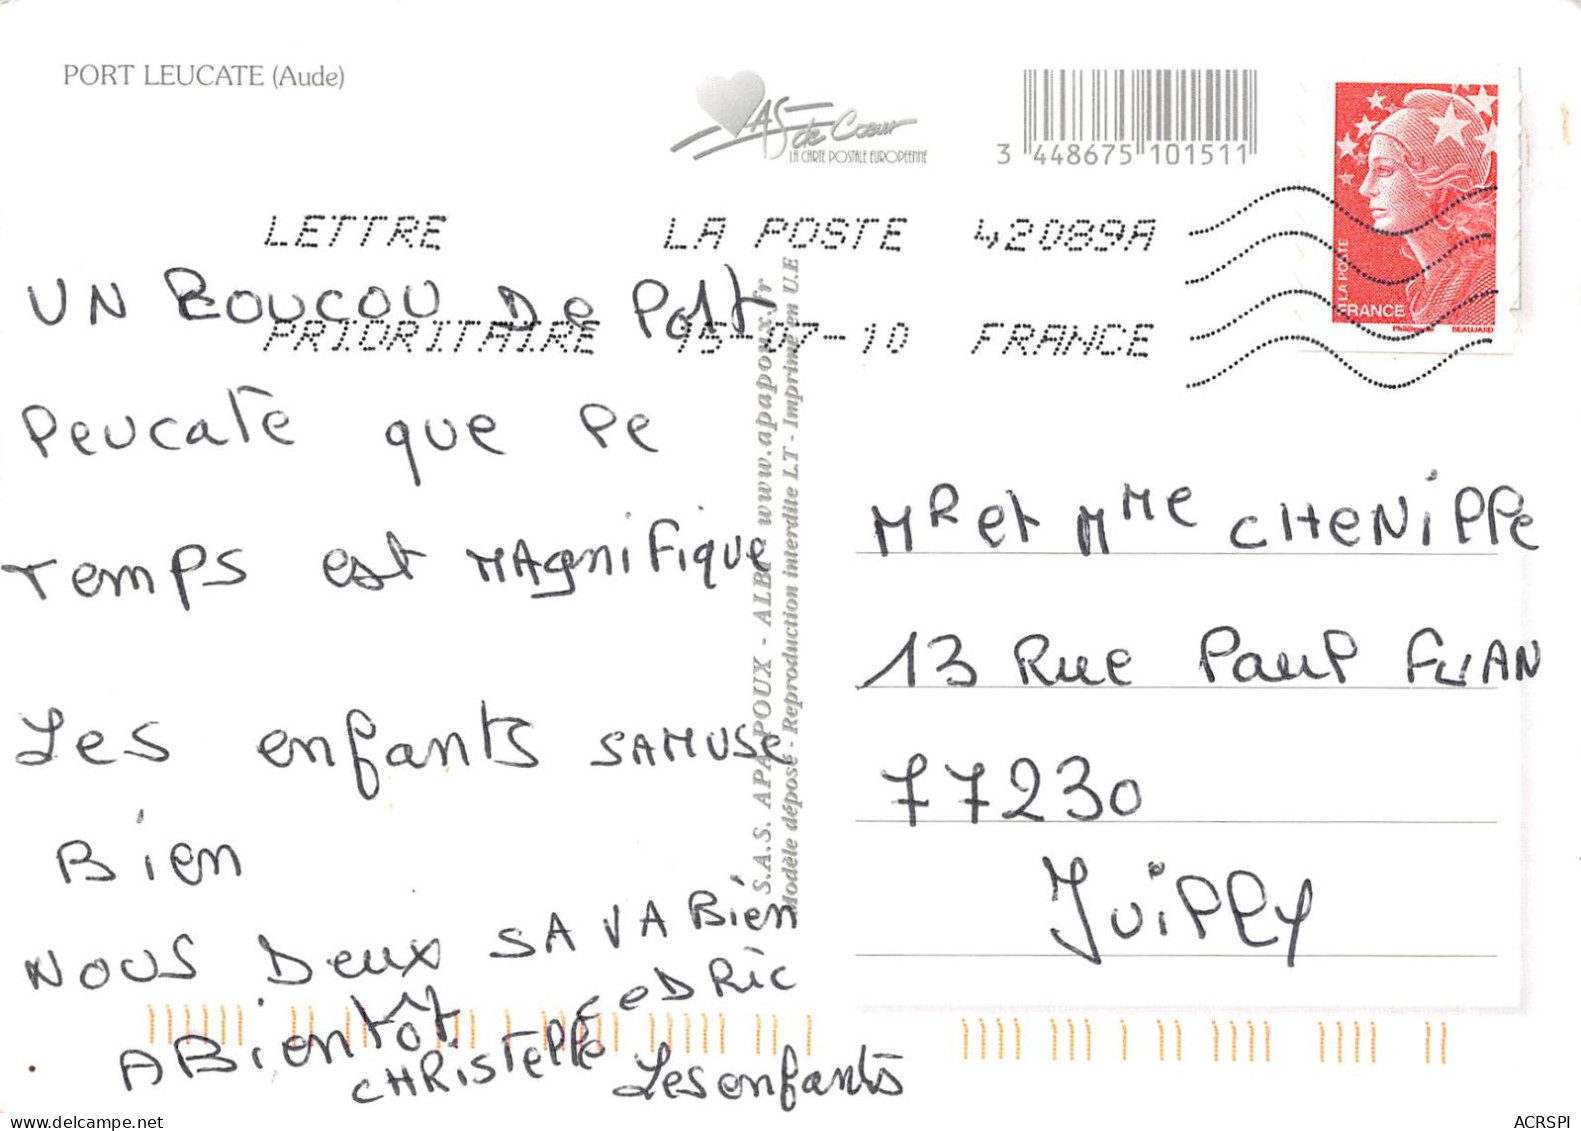 PORT LEUCATE (Aude)
AS de Cœur
LA CARTE POSTALE EUROPEENNE
3 448675 101511
LA POSTE
FRANCE
BEAUJARD
LETTRE LA POSTE 42089A
PRIORITAIRE 15-07-10 FRANCE
UN BOUCOU De Port
Leucate que le
Temps est MAgnifique
Les enfants SAMUSe
Bien
NOUS Deux SA VA Bien
A Bientôt CeDRic
CHRisTelle Les enfants
S.A.S. APA-POUX - ALBI - www.apapoux.fr
Modèle déposé - Reproduction interdite LT - Imprimé en U.E
Mr et Mme CHeNiLLe
13 Rue Paul
77230
Juilly
ACRSPI